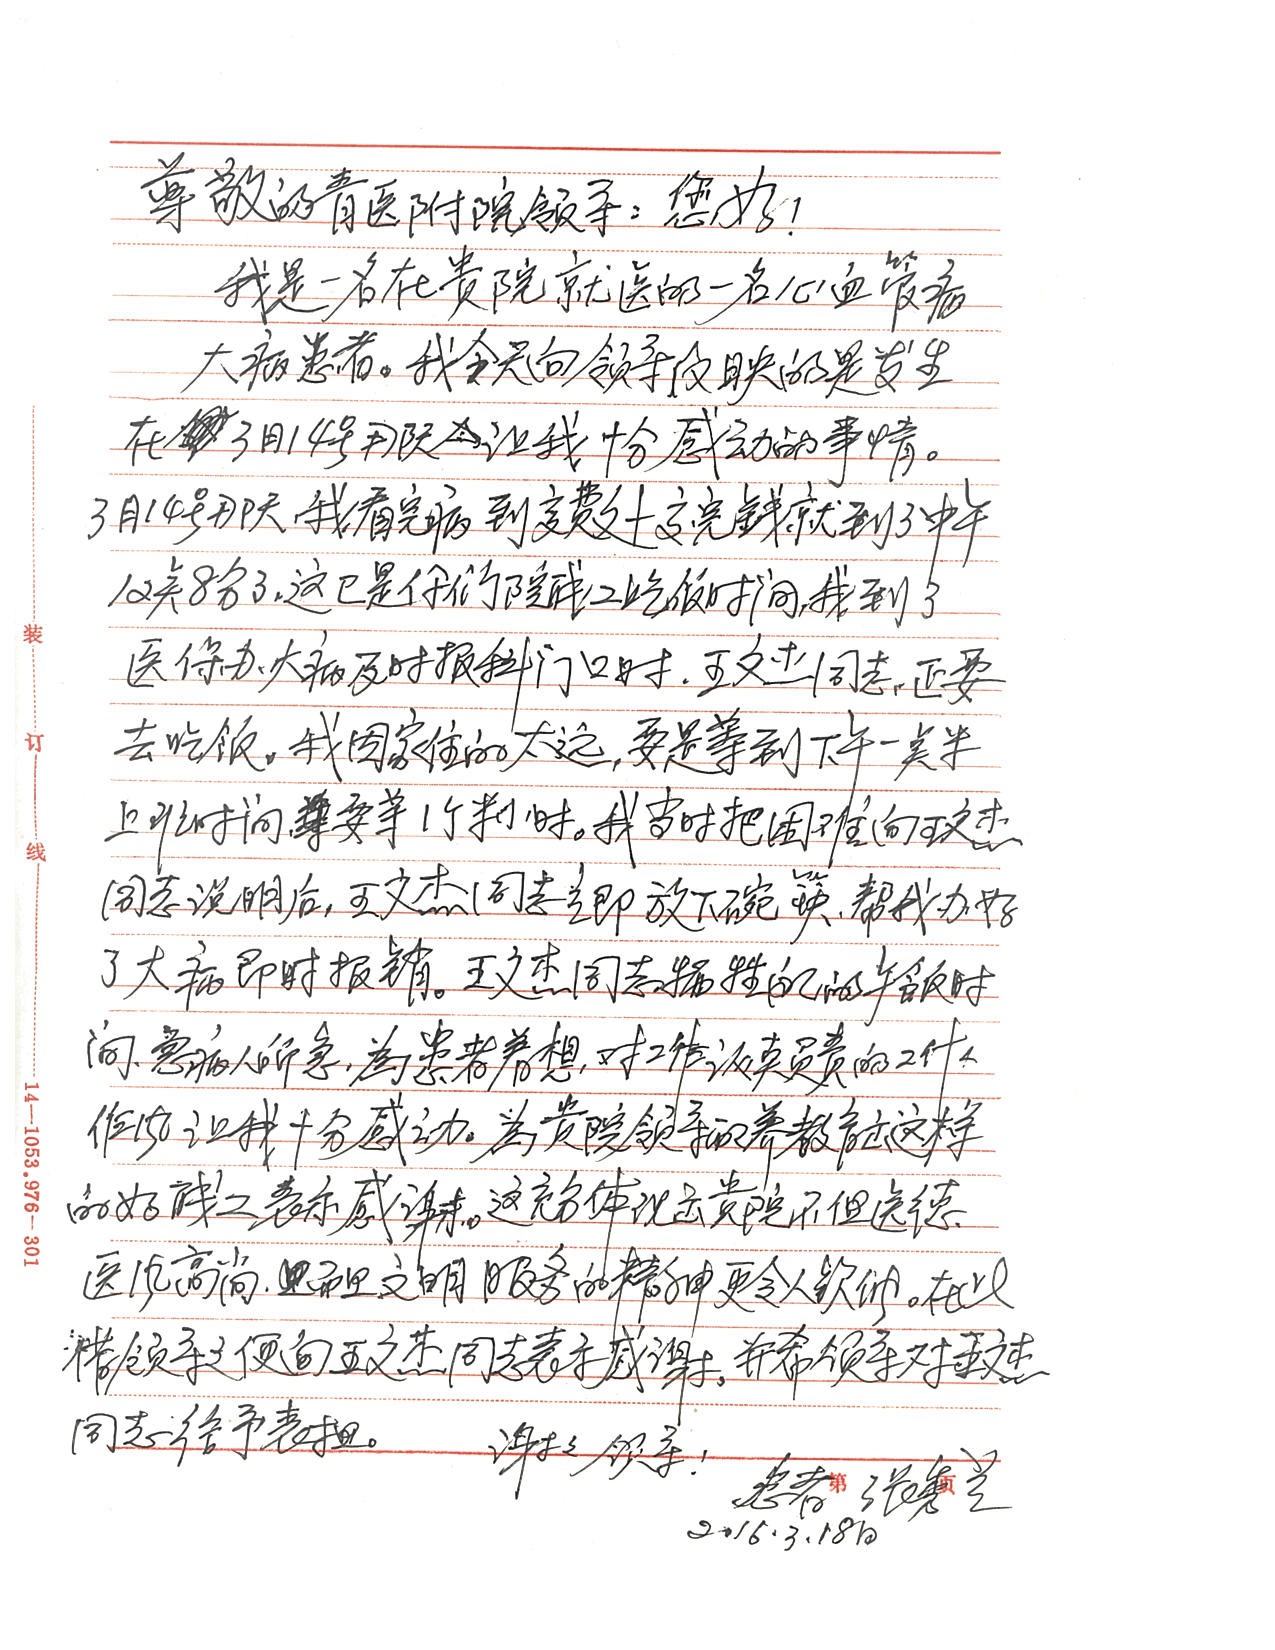 尊敬的青医附院领导：您好！
我是一名在贵院就医的一名心血管病
大病患者。我今天向领导反映的是发生
在3月14号那天让我十分感动的事情。
3月14号那天，我看完病到交费处交完钱就到了中午
12点8分了，这已是你们院职工吃饭时间，我到了
医保办、大病及时报科门口时，王文杰同志，正要
去吃饭。我因家住的太远，要是等到下午一点半
上班时间要等1个半小时。我当时把困难向王文杰
同志说明后，王文杰同志立即放下碗筷，帮我办好
了大病即时报销。王文杰同志牺牲自己的午饭时
间、急病人所急，为患者着想，对工作认真负责的工作
作风让我十分感动。为贵院领导培养教育出这样
的好职工表示感谢。这充分体现出贵院不但医德
医风高尚，而且文明服务的精神更令人钦佩。在此
请领导方便向王文杰同志表示感谢。并希领导对王文杰
同志给予表扬。 谢谢领导！
患者 张
2016.3.18日
第 页
装
订
线
14—1053.976—301